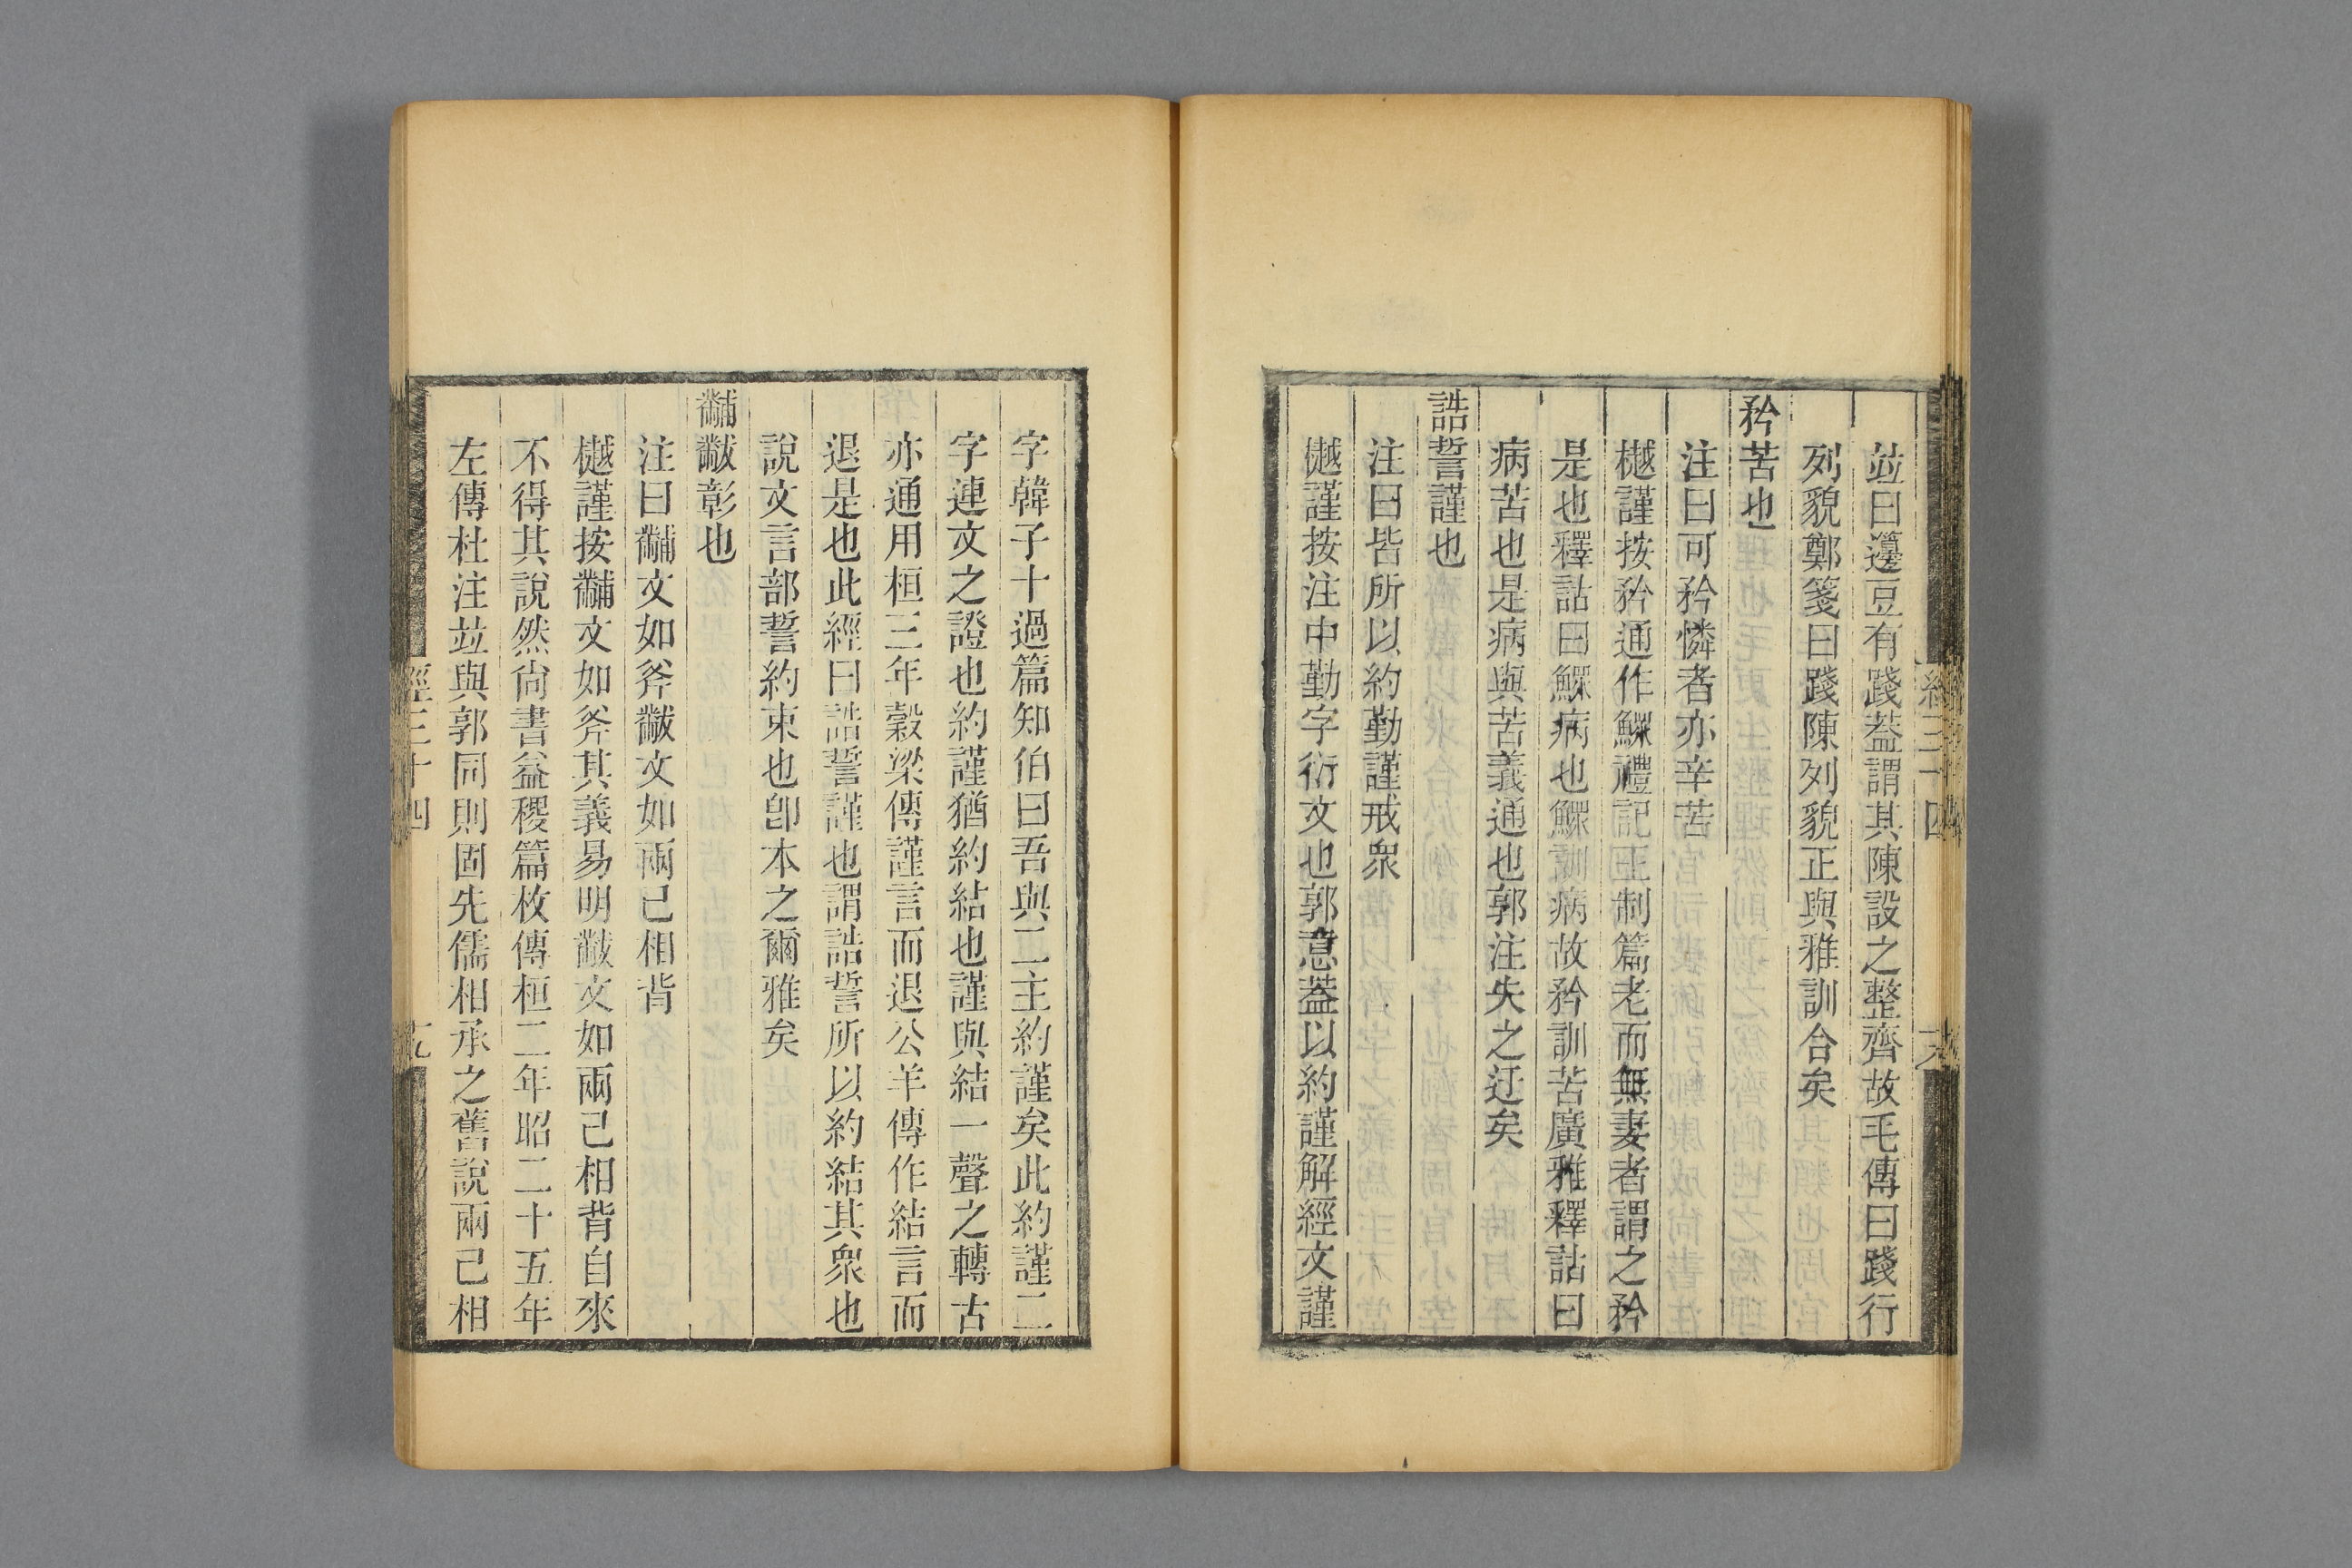 竝曰籩豆有踐葢謂其陳設之整齊故毛傳曰踐行
列貌鄭箋曰踐陳列貌正與雅訓合矣
矜苦也
注曰可矜憐者亦辛苦
樾謹按矜通作鰥禮記王制篇老而無妻者謂之矜
是也釋詁曰鰥病也鰥訓病故矜訓苦廣雅釋詁曰
病苦也是病與苦義通也郭注失之迂矣
誥誓謹也
注曰皆所以約勤謹戒衆
樾謹按注中勤字衍文也郭意葢以約謹解經文謹
字韓子十過篇知伯曰吾與二主約謹矣此約謹二
字連文之證也約謹猶約結也謹與結一聲之轉古
亦通用桓三年穀梁傳謹言而退公羊傳作結言而
退是也此經曰誥誓謹也謂誥誓所以約結其衆也
說文言部誓約束也卽本之爾雅矣
黼黻彰也
注曰黼文如斧黻文如兩己相背
樾謹按黼文如斧其義易明黻文如兩己相背自來
不得其說然尙書益稷篇枚傳桓二年昭二十五年
左傳杜注竝與郭同則固先儒相承之舊說兩己相
經三十四